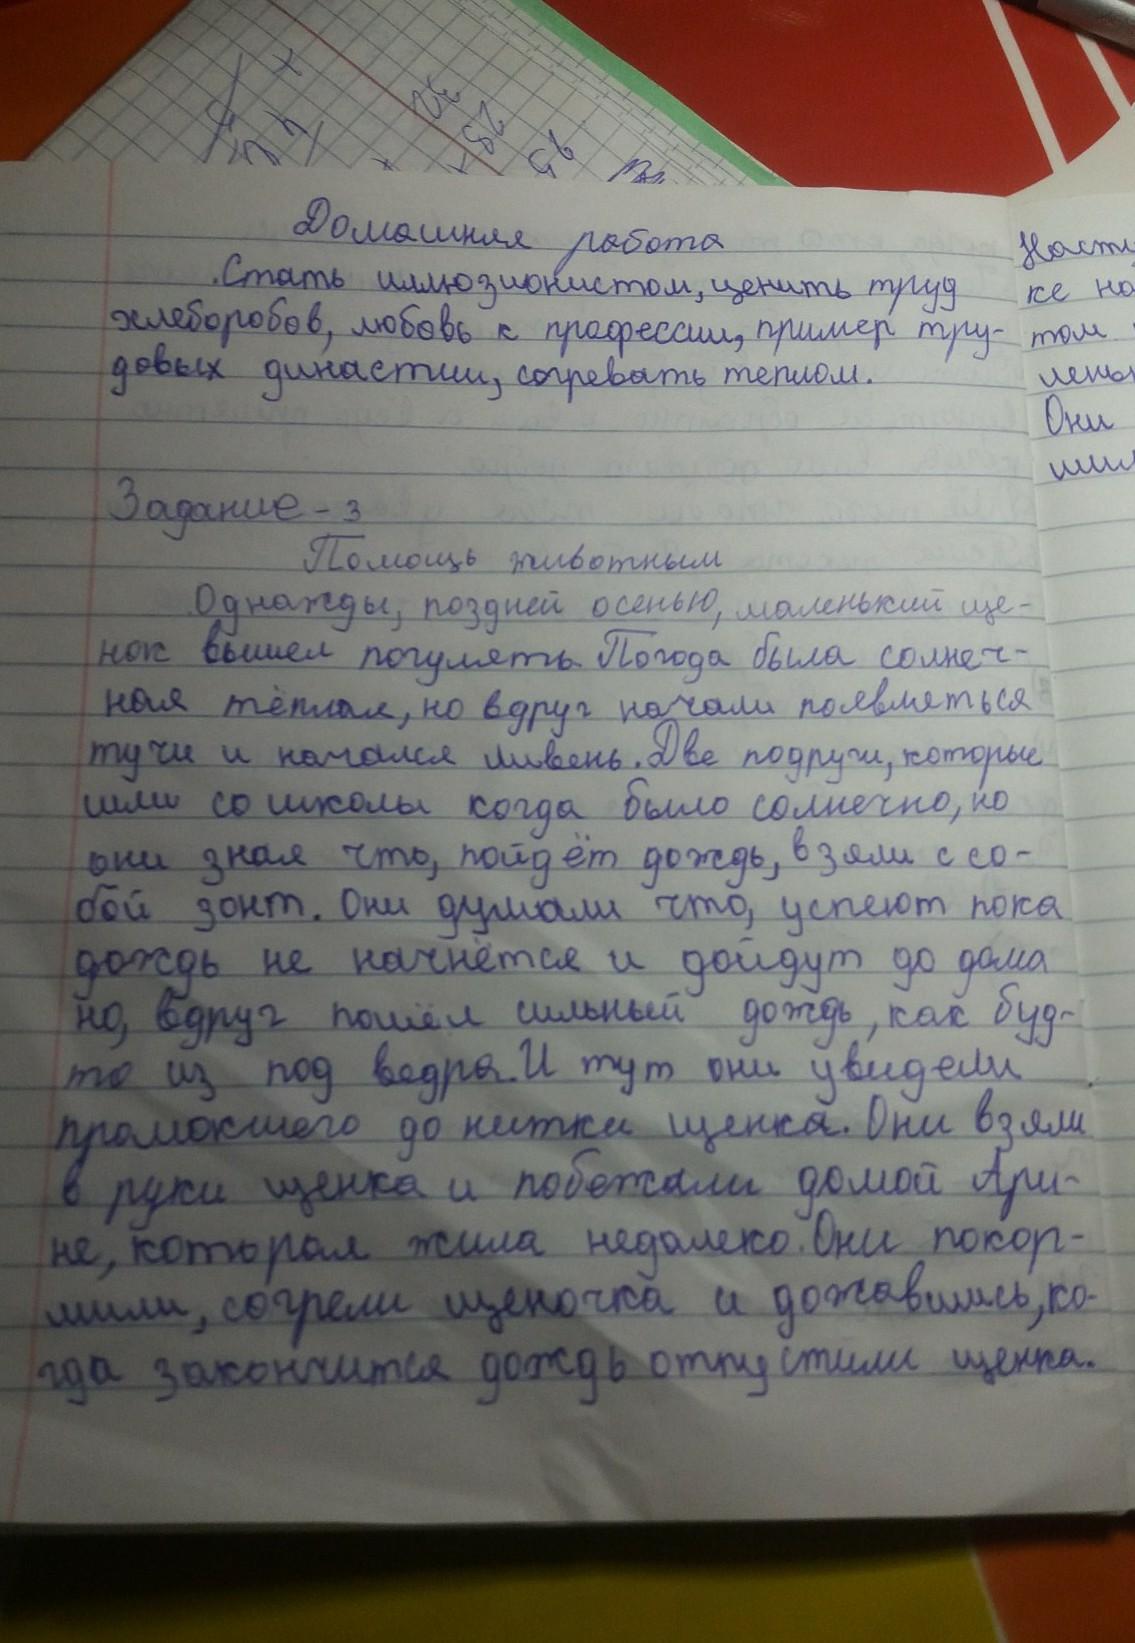 Домашняя работа
Стать иллюзионистом, ценить труд
хлеборобов, любовь к профессии, пример тру-
довых династии, согревать теплом.
Задание - 3
Помощь животным
Однажды, поздней осенью, маленький ще-
нок вышел погулять. Погода была солнеч-
ная тёплая, но вдруг начали появляться
тучи и начался ливень. Две подруги, которые
шли со школы когда было солнечно, но
они зная что, пойдёт дождь, взяли с со-
бой зонт. Они думали что, успеют пока
дождь не начнётся и дойдут до дома
но, вдруг пошёл сильный дождь, как буд-
то из под ведра. И тут они увидели
промокшего до нитки щенка. Они взяли
в руки щенка и побежали домой Ари-
не, которая жила недалеко. Они покор-
мили, согрели щеночка и дожавшись, ко-
гда закончится дождь отпустили щенка.
Насту
ке на
том
Они
25
95